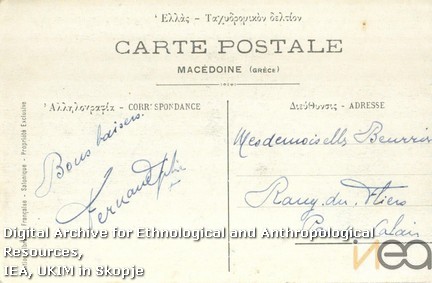 Ἑλλὰς – Ταχυδρομικὸν δελτίον
CARTE POSTALE
MACÉDOINE (GRÈCE)
Ἀλληλογραφία – CORR SPONDANCE
Διεύθυνσις – ADRESSE
Bons baisers.
Mesdemoiselles
Rang du Fliers
Calais
Française - Salonique - Propriété Exclusive
Digital Archive for Ethnological and Anthropological
Resources,
IEA, UKIM in Skopje
iea